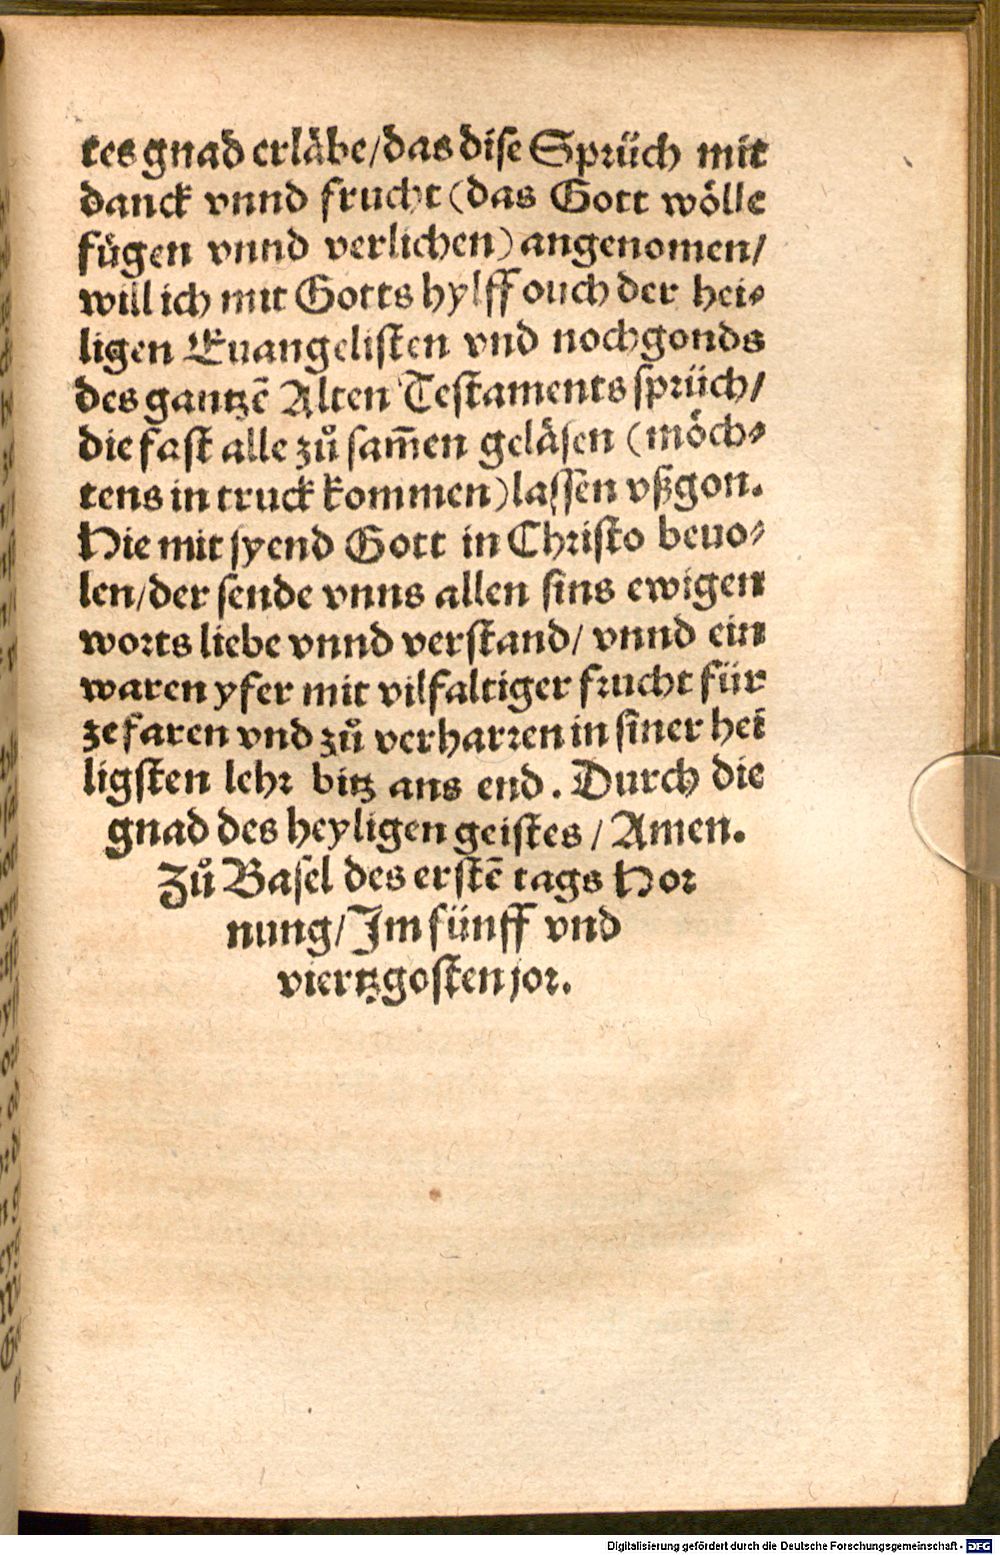 tes gnad erläbe/das dise Sprüch mit
danck vnnd frucht (das Gott wölle
fügen vnnd verlichen) angenomen/
will ich mit Gotts hylff ouch der hei⸗
ligen Euangelisten vnd nochgonds
des gantzē Alten Testaments sprüch/
die fast alle zů sam̄en geläsen (möch⸗
tens in truck kommen) lassen vßgon.
Hie mit syend Gott in Christo beuo⸗
len/der sende vnns allen sins ewigen
worts liebe vnnd verstand/ vnnd ein
waren yfer mit vilfaltiger frucht für
ze faren vnd zů verharren in siner hei
ligsten lehr bitz ans end. Durch die
gnad des heyligen geistes / Amen.
Zů Basel des erstē tags Hor
nung/Im fünff vnd
viertzgosten jor.
Digitalisierung gefördert durch die Deutsche Forschungsgemeinschaft - DFG